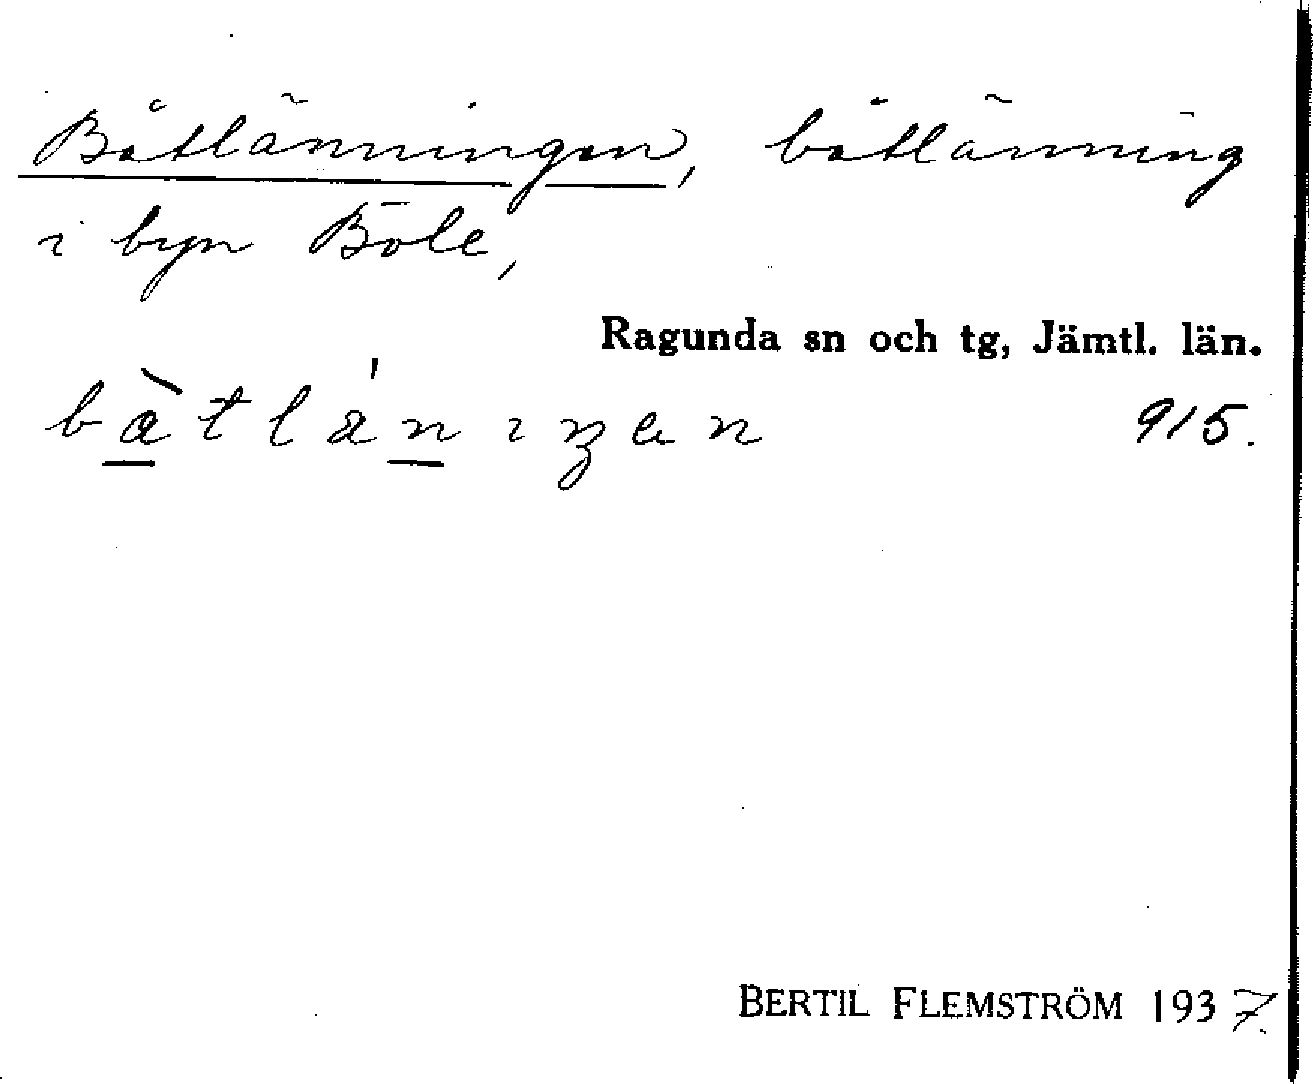 Båtlänningen, båtlänning
i byn Böle,
Ragunda sn och tg, Jämtl. län.
915.
BERTIL FLEMSTRÖM 1937.